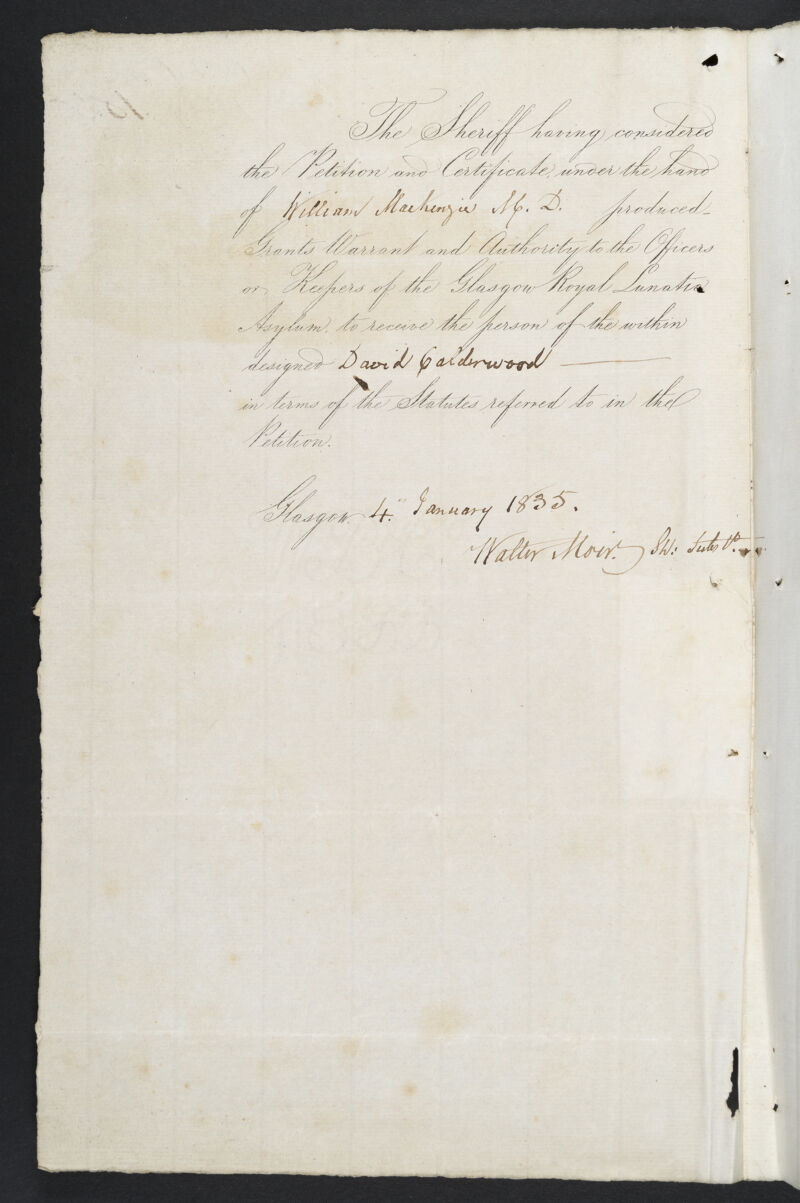 The Sheriff having considered
the Petition and Certificate, under the hand
of William Mackenzie M. D. produced
Grants Warrant and Authority to the Officers
or Keepers of the Glasgow Royal Lunatic
Asylum to receive the person of the within
designed David Calderwood —
in terms of the Statutes referred to in the
Petition.
Glasgow 4th January 1835.
Walter Moir. Sh: